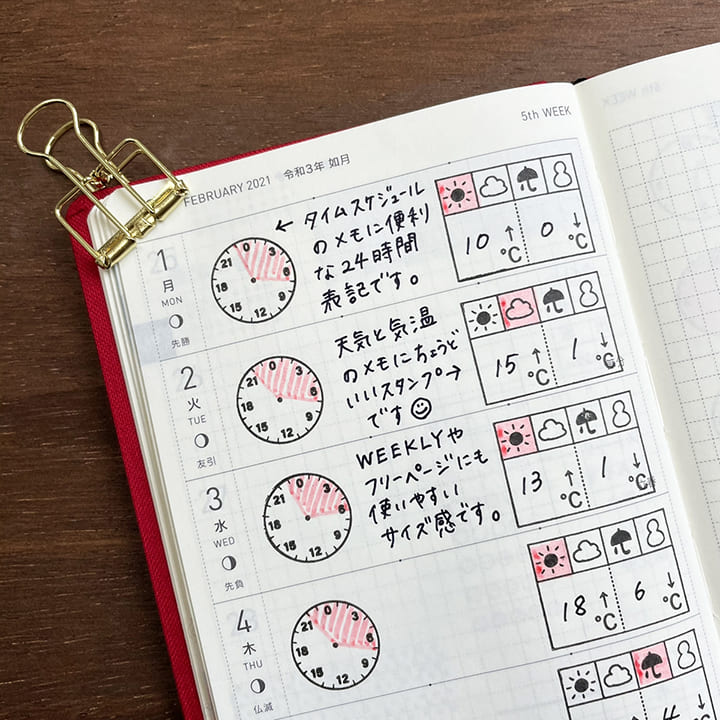 5th WEEK
FEBRUARY 2021 令和3年 如月
1
月
MON
先勝
0
3
6
9
12
15
18
21
← タイムスケジュール
のメモに便利
な24時間
表記です。
10 ↑ ℃
0 ↓ ℃
2
火
TUE
友引
0
3
6
9
12
15
18
21
天気と気温
のメモにちょうど
いいスタンプ→
です
15 ↑ ℃
1 ↓ ℃
3
水
WED
先負
0
3
6
9
12
15
18
21
WEEKLYや
フリーページにも
使いやすい
サイズ感です。
13 ↑ ℃
1 ↓ ℃
4
木
THU
仏滅
0
3
6
9
12
15
18
21
18 ↑ ℃
6 ↓ ℃